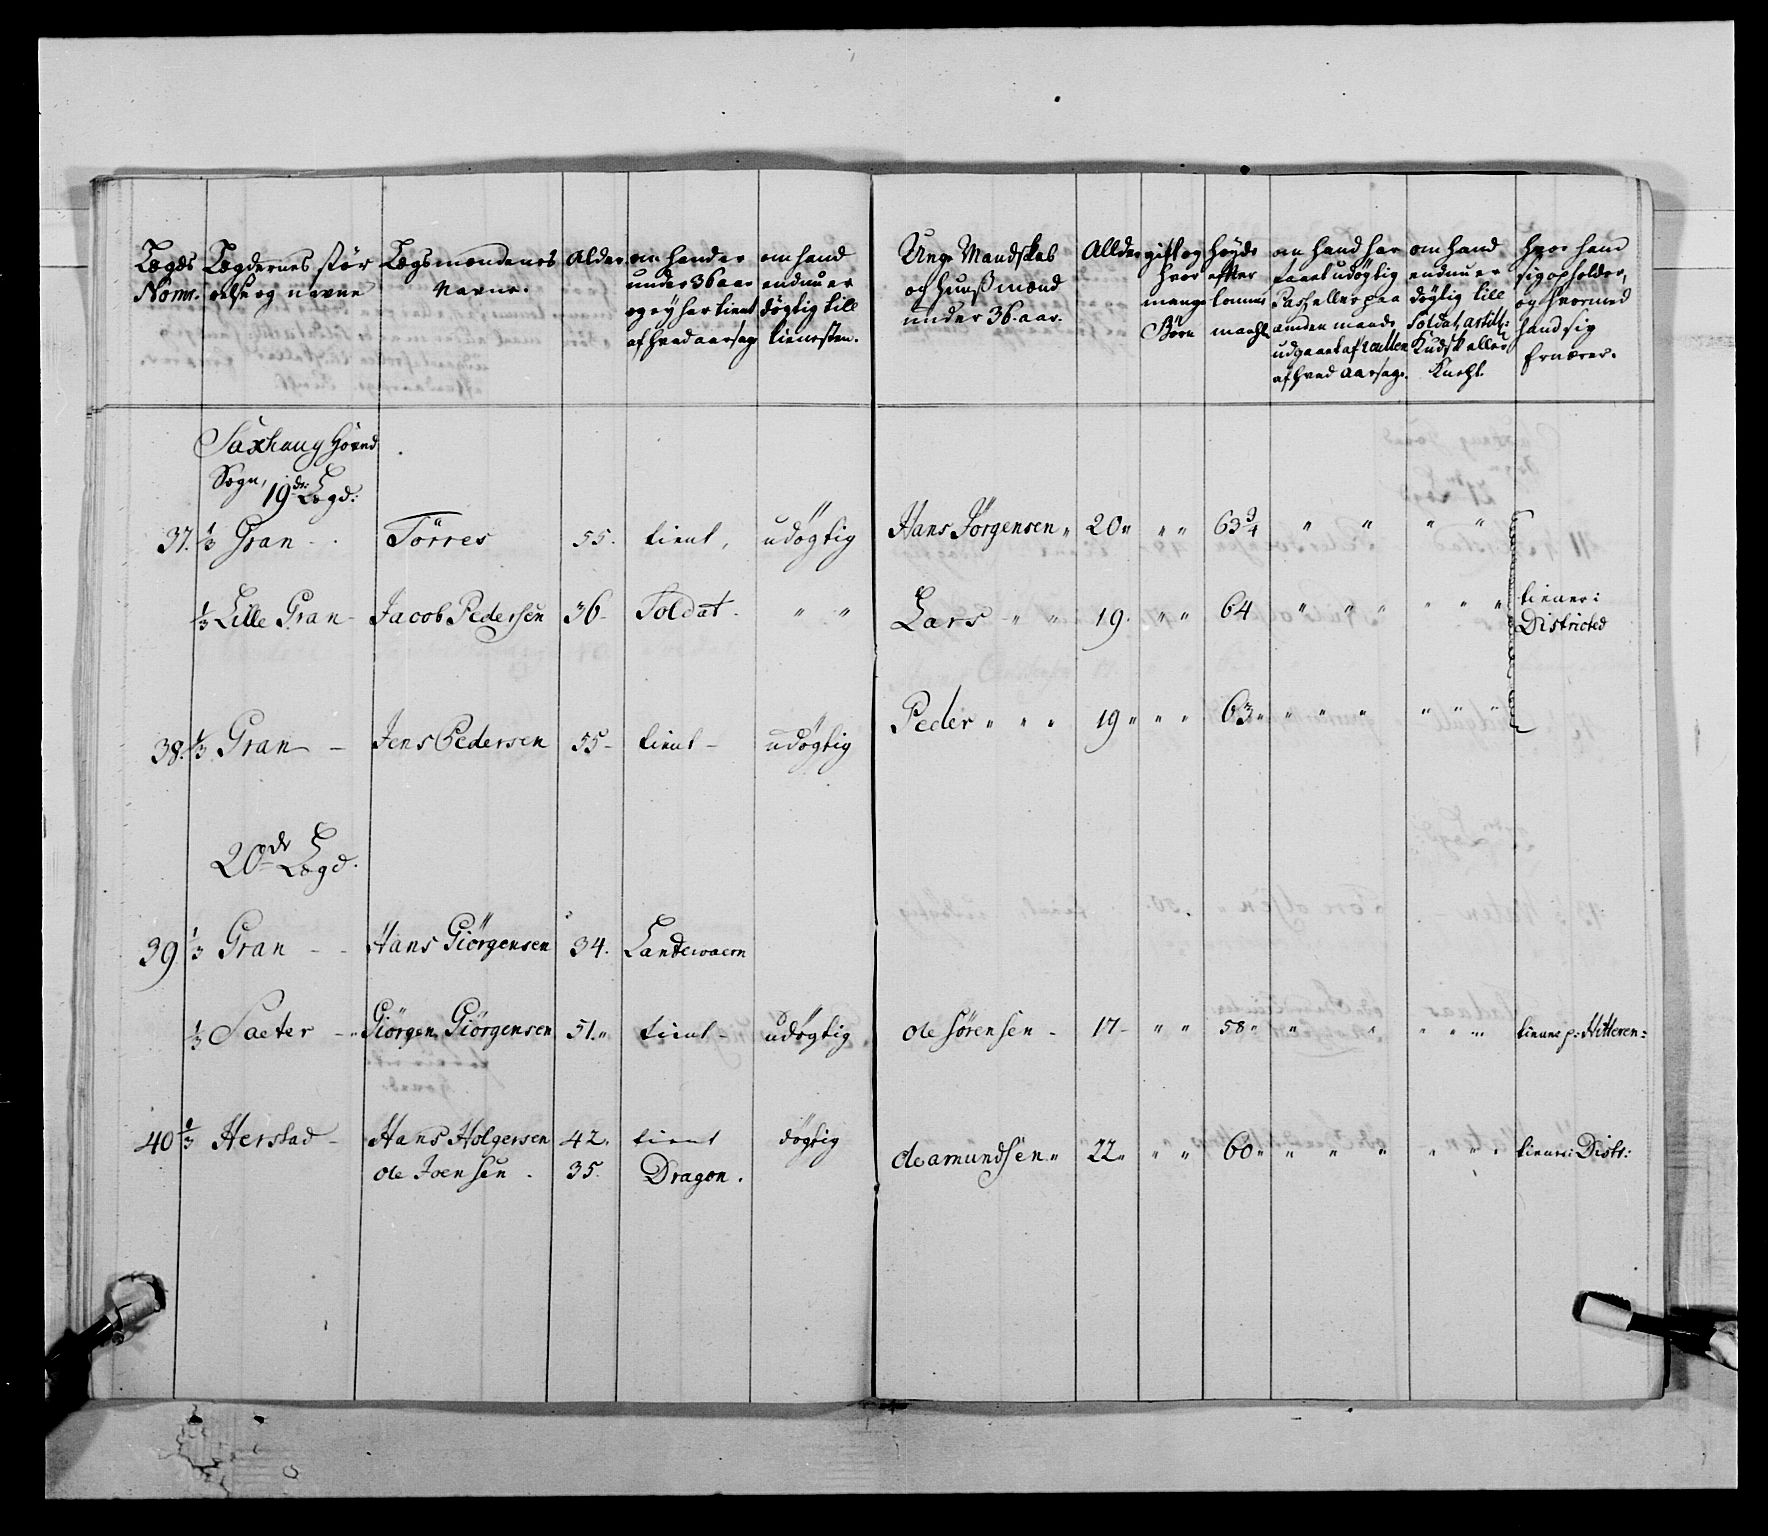 Lægds Nomr.
Lægdernes stør
relse og navne
Lægsmændenes
Navne.
Alder
om hand er
under 36 aar
og ey har tient
af hvad aarsag
om hand
endnu er
døgtig till
tienesten.
Unge Mandskab
og Huusmænd
under 36. aar.
Allder
gift og
hvor
mange
Børn
høyde
efter
tomme
maahl
om hand har
faaet udøgtig
Pas, eller paa
anden maade
udgaaet af Rullen
af hvad aarsag.
om hand
endnu er
døgtig till
Soldat, artill:
Kudsk eller
Knegt.
hvor hand
sig opholder,
og hvormed
hand sig
ernærer.
Saxhaug Hoved
Sogn,
19de Lægd:
37. 1/3 Gran - - Törres 55. tient, udøgtig Hans Jörgensen " 20 " " " 63 3/4 " " " "
1/3 Lille Gran - Jacob Pedersen 36 - Soldat - " " Lars " " 19. " " 64 " " " " " " tiener:
Districted
38. 1/3 Gran - Jens Pedersen 55 - tient - udøgtig Peder " " " 19 " " " 63 " " " " " " "
20de Lægd.
39 1/3 Gran - - Hans Giörgensen 34. Landewaern
1/3 Saeter - - Giörgen Giörgensen 51. " tient - udøgtig Ole Sörensen - 17 - " " 58 " " " " " " tiener p: Hitteren:
40 2/3 Herstad - Hans Holgersen 42. tient døgtig
Ole Joensen . 35. Dragon .
Ole amundsen " 22 " " " 60 " " " " " " " tiener: Distr: